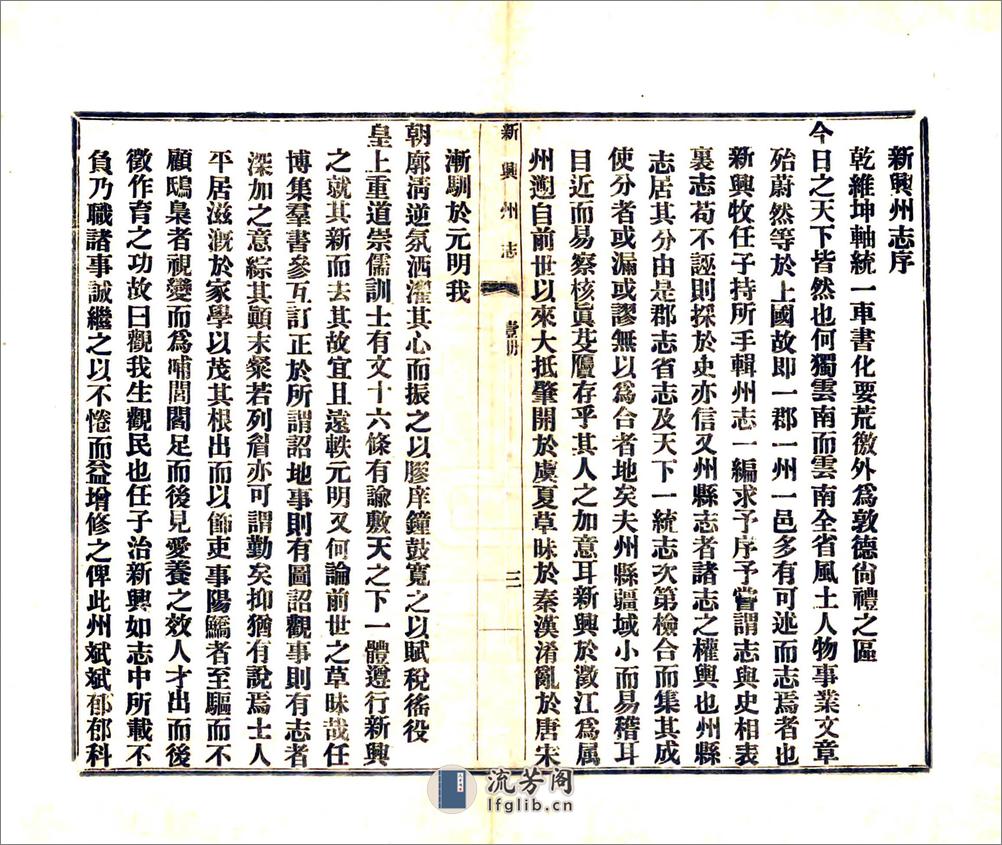 新興州志序
乾維坤軸統一車書化要荒徼外爲敦德尙禮之區
今日之天下皆然也何獨雲南而雲南全省風土人物事業文章
殆蔚然等於上國故即一郡一州一邑多有可述而志焉者也
新興牧任子持所手輯州志一編求予序予嘗謂志與史相表
裏志苟不誣則採於史亦信又州縣志者諸志之權輿也州縣
志居其分由是郡志省志及天下一統志次第檢合而集其成
使分者或漏或謬無以爲合者地矣夫州縣疆域小而易稽耳
目近而易察核眞芟贗存乎其人之加意耳新興於澂江爲屬
州遡自前世以來大抵肇開於虞夏草昧於秦漢淆亂於唐宋
新興州志
壹册
三
漸馴於元明我
朝廓淸逆氛洒濯其心而振之以膠庠鐘鼓寬之以賦稅徭役
皇上重道崇儒訓士有文十六條有諭敷天之下一體遵行新興
之就其新而去其故宜且遠軼元明又何論前世之草昧哉任
博集羣書參互訂正於所謂詔地事則有圖詔觀事則有志者
深加之意綜其顚末粲若列眉亦可謂勤矣抑猶有說焉士人
平居滋漑於家學以茂其根出而以飾吏事陽鱎者至驅而不
顧鴟梟者視變而爲哺閭閻足而後見愛養之效人才出而後
徵作育之功故曰觀我生觀民也任子治新興如志中所載不
負乃職諸事誠繼之以不惓而益增修之俾此州斌斌郁郁科
流芳阁
lfglib.cn